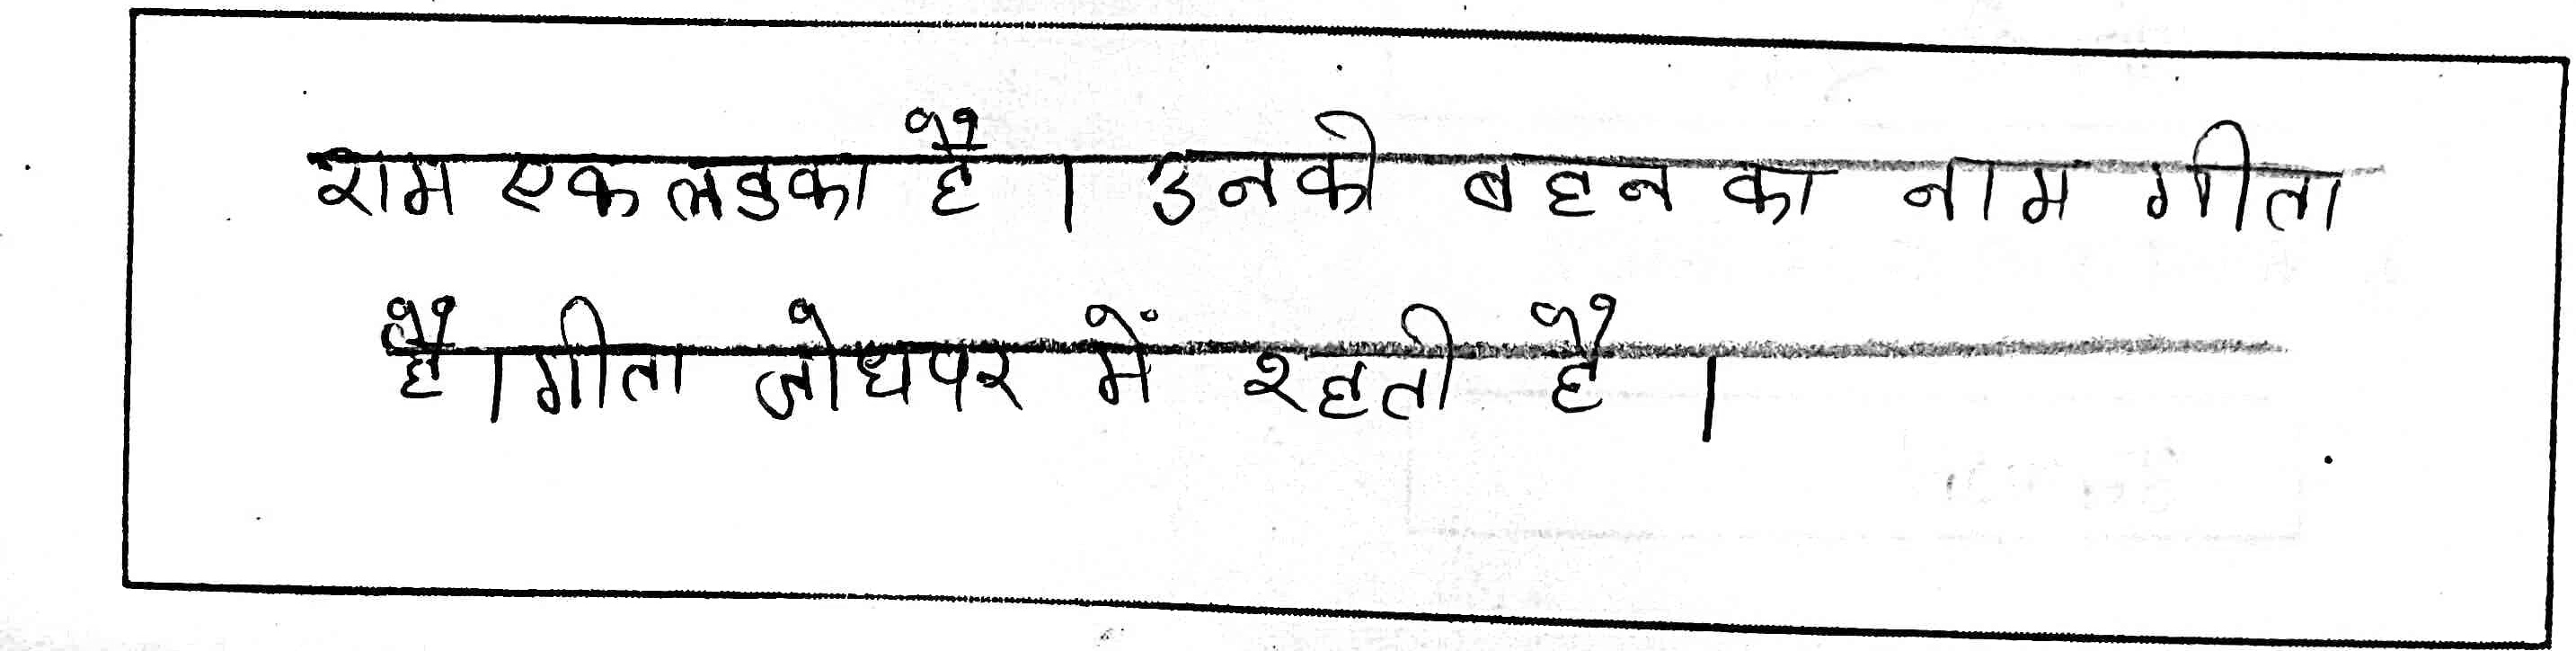 राम एक लडका है। उनकी बहन का नाम गीता
है। गीता जोधपर में रहती है।